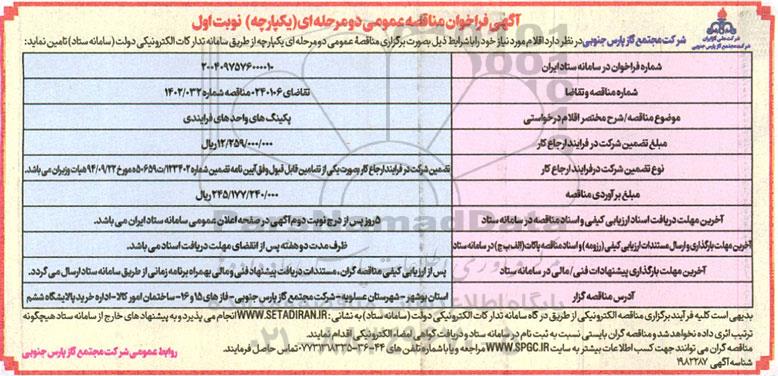 آگهی فراخوان مناقصه عمومی دو مرحله ای (یکپارچه) نوبت اول
شرکت ملی گاز ایران
شرکت مجتمع گاز پارس جنوبی
شرکت مجتمع گاز پارس جنوبی در نظر دارد اقلام مورد نیاز خود را با شرایط ذیل بصورت برگزاری مناقصهٔ عمومی دو مرحله ای یکپارچه از طریق سامانه تدارکات الکترونیکی دولت (سامانه ستاد) تامین نماید:
شماره فراخوان در سامانه ستاد ایران ۲۰۰۴۰۹۷۵۷۶۰۰۰۰۱۰
شماره مناقصه و تقاضا تقاضای ۰۲۴۰۱۰۶ مناقصه شماره ۱۴۰۲/۰۳۲
موضوع مناقصه/شرح مختصر اقلام درخواستی پکینگ های واحدهای فرایندی
مبلغ تضمین شرکت در فرایند ارجاع کار ۱۲/۲۵۹/۰۰۰/۰۰۰ ریال
نوع تضمین شرکت در فرایند ارجاع کار تضمین شرکت در فرایند ارجاع کار بصورت یکی از تضامین قابل قبول وفق آیین نامه تضمین شماره ۱۲۳۴۰۲/ت۵۰۶۵۹ه مورخ ۹۴/۰۹/۲۲ هیات وزیران می باشد.
مبلغ برآوردی مناقصه ۲۴۵/۱۷۷/۲۴۰/۰۰۰ ریال
آخرین مهلت دریافت اسناد ارزیابی کیفی و اسناد مناقصه در سامانه ستاد ۵ روز پس از درج نوبت دوم آگهی در صفحه اعلان عمومی سامانه ستاد ایران می باشد.
آخرین مهلت بارگذاری و ارسال مستندات ارزیابی کیفی (رزومه) و اسناد مناقصه پاکات (الف ب ج) در سامانه ستاد ظرف مدت دو هفته پس از انقضای مهلت دریافت اسناد می باشد.
آخرین مهلت بارگذاری پیشنهادات فنی/مالی در سامانه ستاد پس از ارزیابی کیفی مناقصه گران، مستندات دریافت پیشنهاد فنی و مالی بهمراه برنامه زمانی از طریق سامانه ستاد ارسال می گردد.
آدرس مناقصه گزار استان بوشهر - شهرستان عسلویه - شرکت مجتمع گاز پارس جنوبی - فازهای ۱۵ و ۱۶ - ساختمان امور کالا - اداره خرید پالایشگاه ششم
بدیهی است کلیه فرآیند برگزاری مناقصه الکترونیکی از طریق درگاه سامانه تدارکات الکترونیکی دولت (سامانه ستاد) به نشانی: WWW.SETADIRAN.IR انجام می پذیرد و به پیشنهادهای خارج از سامانه ستاد هیچگونه
ترتیب اثری داده نخواهد شد و مناقصه گران بایستی نسبت به ثبت نام در سامانه ستاد و دریافت گواهی امضاء الکترونیکی اقدام نمایند.
مناقصه گران می توانند جهت کسب اطلاعات بیشتر به سایت WWW.SPGC.IR مراجعه و یا با شماره تلفن های ۴۴-۳۶-۰۷۷۳۱۳۱۸۳۳۵ تماس حاصل فرمایند.
شناسه آگهی ۱۹۸۲۲۸۷
روابط عمومی شرکت مجتمع گاز پارس جنوبی